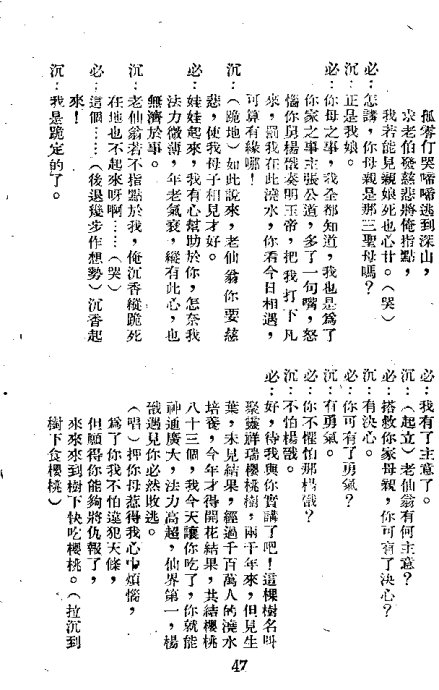 孤零仃哭啼啼逃到深山，
求老伯發慈悲將俺指點，
我若能見親娘死也心甘。（哭）
必：怎講，你母親是那三聖母嗎？
沉：正是我娘。
必：你母之事，我全都知道，我也是爲了
你家之事主張公道，多了一句嘴，怒
惱你舅楊戩奏明玉帝，把我打下凡
來，罰我在此澆水，你看今日相遇，
可算有緣哪！
沉：（跪地）如此說來，老仙翁你要慈
悲，使我母子相見才好。
必：娃娃起來，我有心幫助於你，怎奈我
法力微薄，年老氣衰，縱有此心，也
無濟於事。
沉：老仙翁若不指點於我，俺沉香縱跪死
在地也不起來呀啊……（哭）
必：這個……（後退幾步作想勢）沉香起
來！
沉：我是跪定的了。
必：我有了主意了。
沉：（起立）老仙翁有何主意？
必：搭救你家母親，你可有了決心？
沉：有決心。
必：你可有了勇氣？
沉：有勇氣。
必：你不懼怕那楊戩？
沉：不怕楊戩。
必：好，待我與你實講了吧！這棵樹名叫
聚靈祥瑞櫻桃樹，兩千年來，但見生
葉，未見結果，經過千百萬人的澆水
培養，今年才得開花結果，共結櫻桃
八十三個，我今天讓你吃了，你就能
神通廣大，法力高超，仙界第一，楊
戩遇見你必然敗逃。
（唱）押你母惹得我心中煩惱，
爲了你我不怕違犯天條，
但願得你能夠將仇報了，
來來來到樹下快吃櫻桃。（拉沉到
樹下食櫻桃）
47